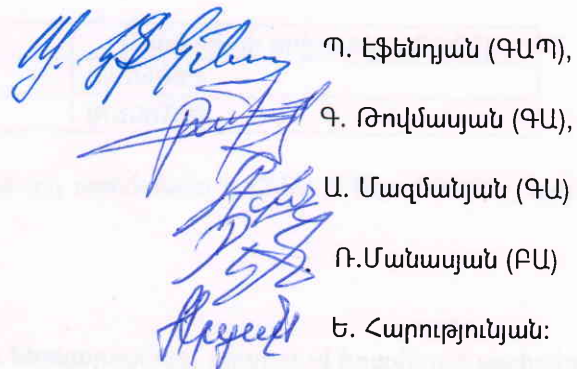 Պ. Էֆենդյան (ԳԱՊ),
Գ. Թովմասյան (ԳԱ),
Ա. Մազմանյան (ԳԱ)
Ռ.Մանասյան (ԲԱ)
Ե. Հարությունյան: